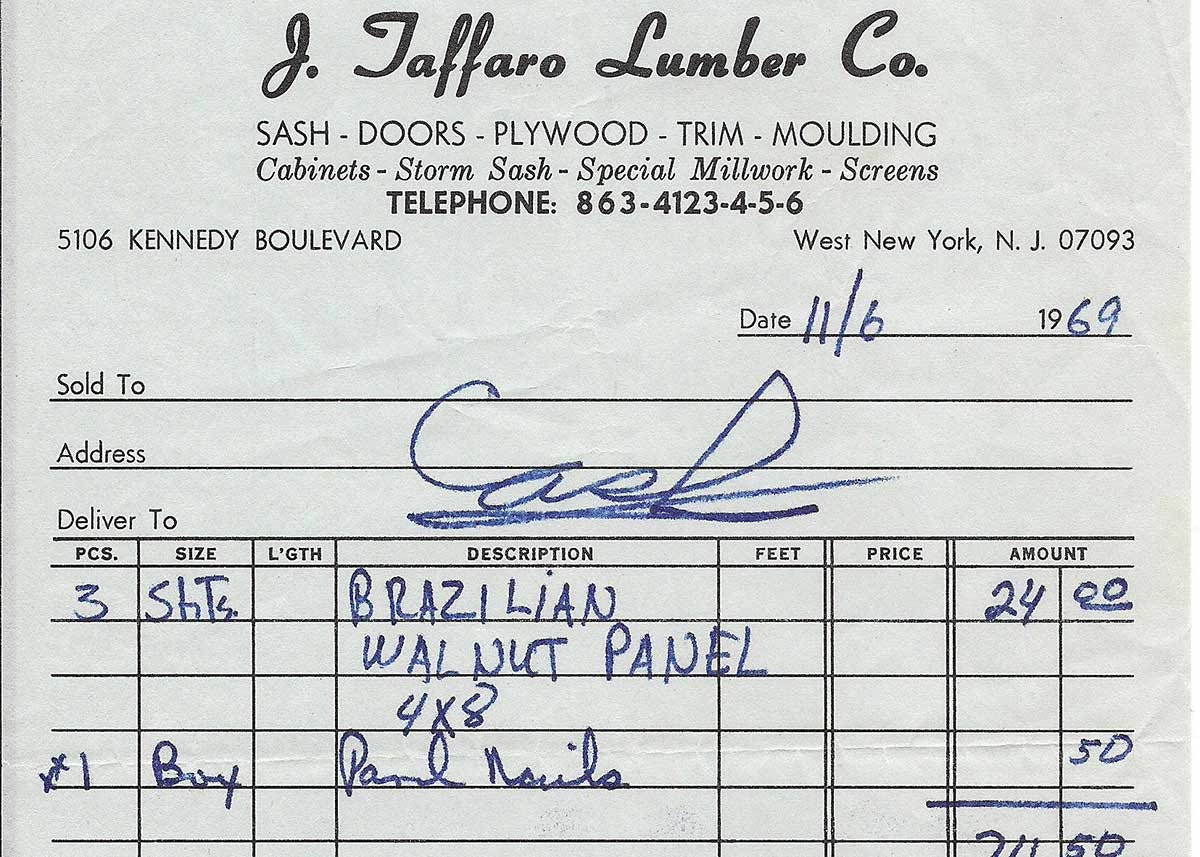 J. Taffaro Lumber Co.
SASH - DOORS - PLYWOOD - TRIM - MOULDING
Cabinets - Storm Sash - Special Millwork - Screens
TELEPHONE: 863-4123-4-5-6
5106 KENNEDY BOULEVARD West New York, N. J. 07093
Date 11/6 1969
Sold To
Address Cash
Deliver To
PCS. SIZE L'GTH DESCRIPTION FEET PRICE AMOUNT
3 ShTs. BRAZILIAN 24 00
WALNUT PANEL
4x8
#1 Box Panel Nails 50
24 50